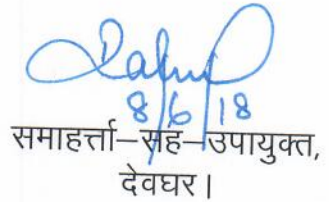 8/6/18
समाहर्त्ता–सह–उपायुक्त,
देवघर।